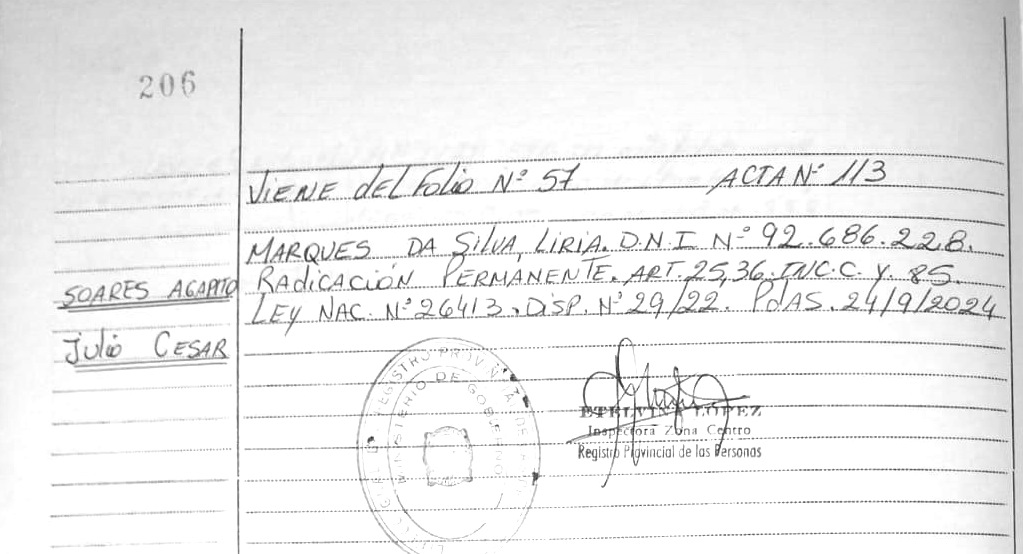 206
VIENE DEL FOLIO Nº 57 ACTA Nº 113
MARQUES DA SILVA, LIRIA. D.N.I Nº 92.686.228.
SOARES AGAPITO
RADICACIÓN PERMANENTE. ART. 25,36. INC.C. Y. 85.
LEY NAC. Nº 26413. DISP. Nº 29/22. PDAS. 24/9/2024
JULIO CESAR
REGISTRO PROVINCIAL DE
MINISTERIO DE GOBIERNO
ETELVINA LOPEZ
Inspectora Zona Centro
Registro Provincial de las Personas